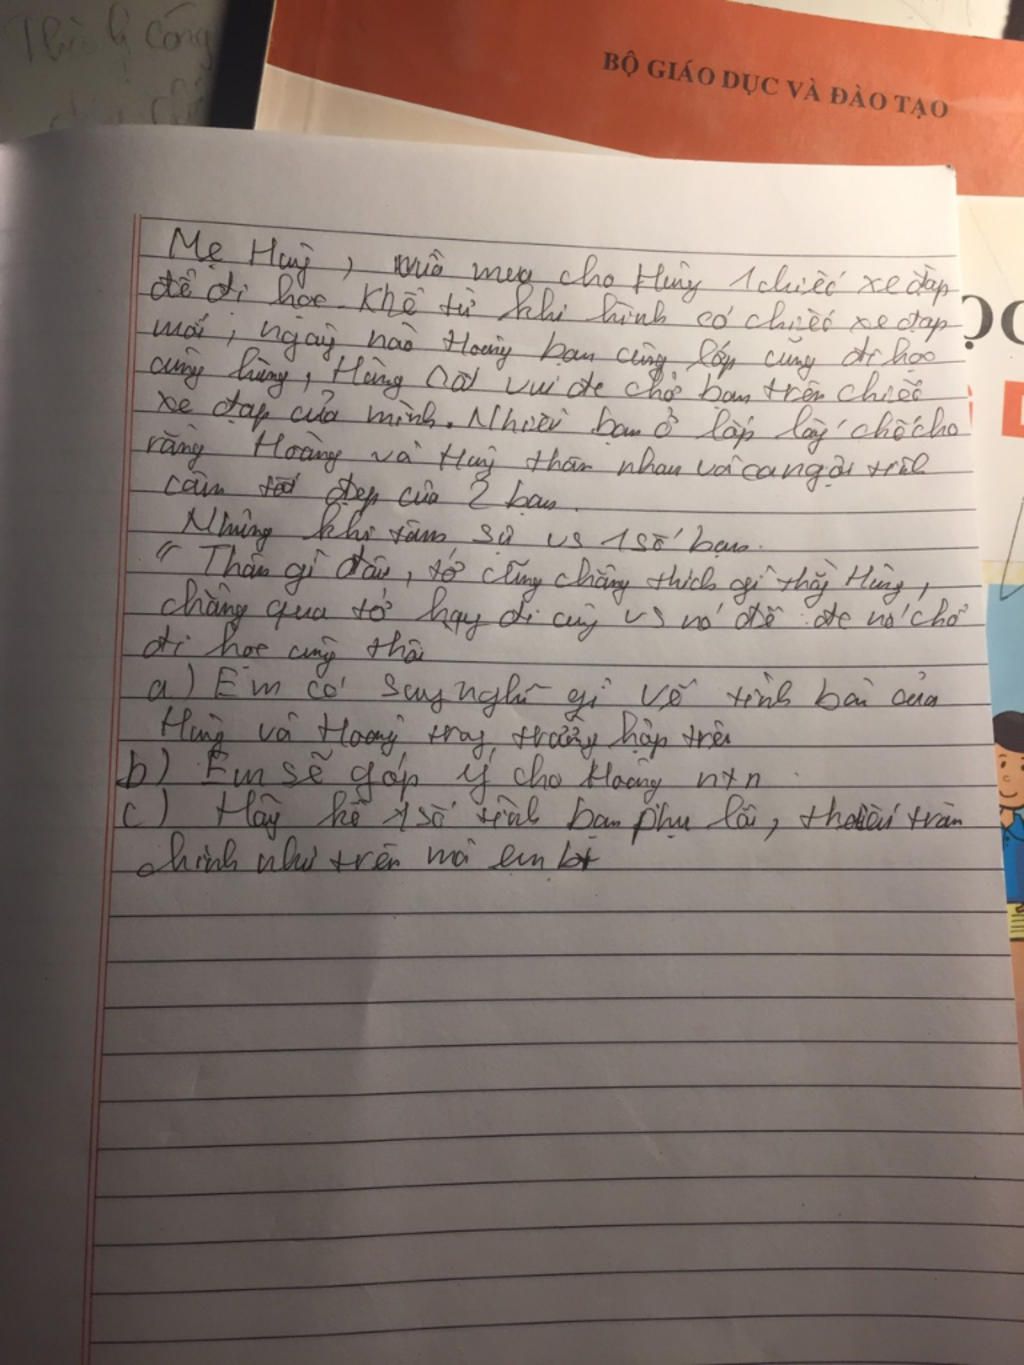 BỘ GIÁO DỤC VÀ ĐÀO TẠO
Mẹ Hùng, mua cho Hùng 1 chiếc xe đạp
để đi học. Kể từ khi hình có chiếc xe đạp
mới, ngày nào Hoàng bạn cùng lớp cũng đi học
cùng hùng, Hùng rất vui để chở bạn trên chiếc
xe đạp của mình. Nhiều bạn ở lớp lấy chố cho
rằng Hoàng và Hùng thân nhau và ca ngợi tình
cảm đẹp của 2 bạn.
Nhưng khi tâm sự vs 1 số bạn.
" Thân gì đâu, tớ cũng chẳng thích gì thằng Hùng,
chẳng qua tớ hay đi cùng vs nó để nó chở
đi học cùng thôi
a) Em có suy nghĩ gì về tình bạn của
Hùng và Hoàng trong trường hợp trên
b) Em sẽ góp ý cho Hoàng ntn
c) Hãy kể 1 số tình bạn phụ lãi, thiếu trân
hình như trên mà em bt